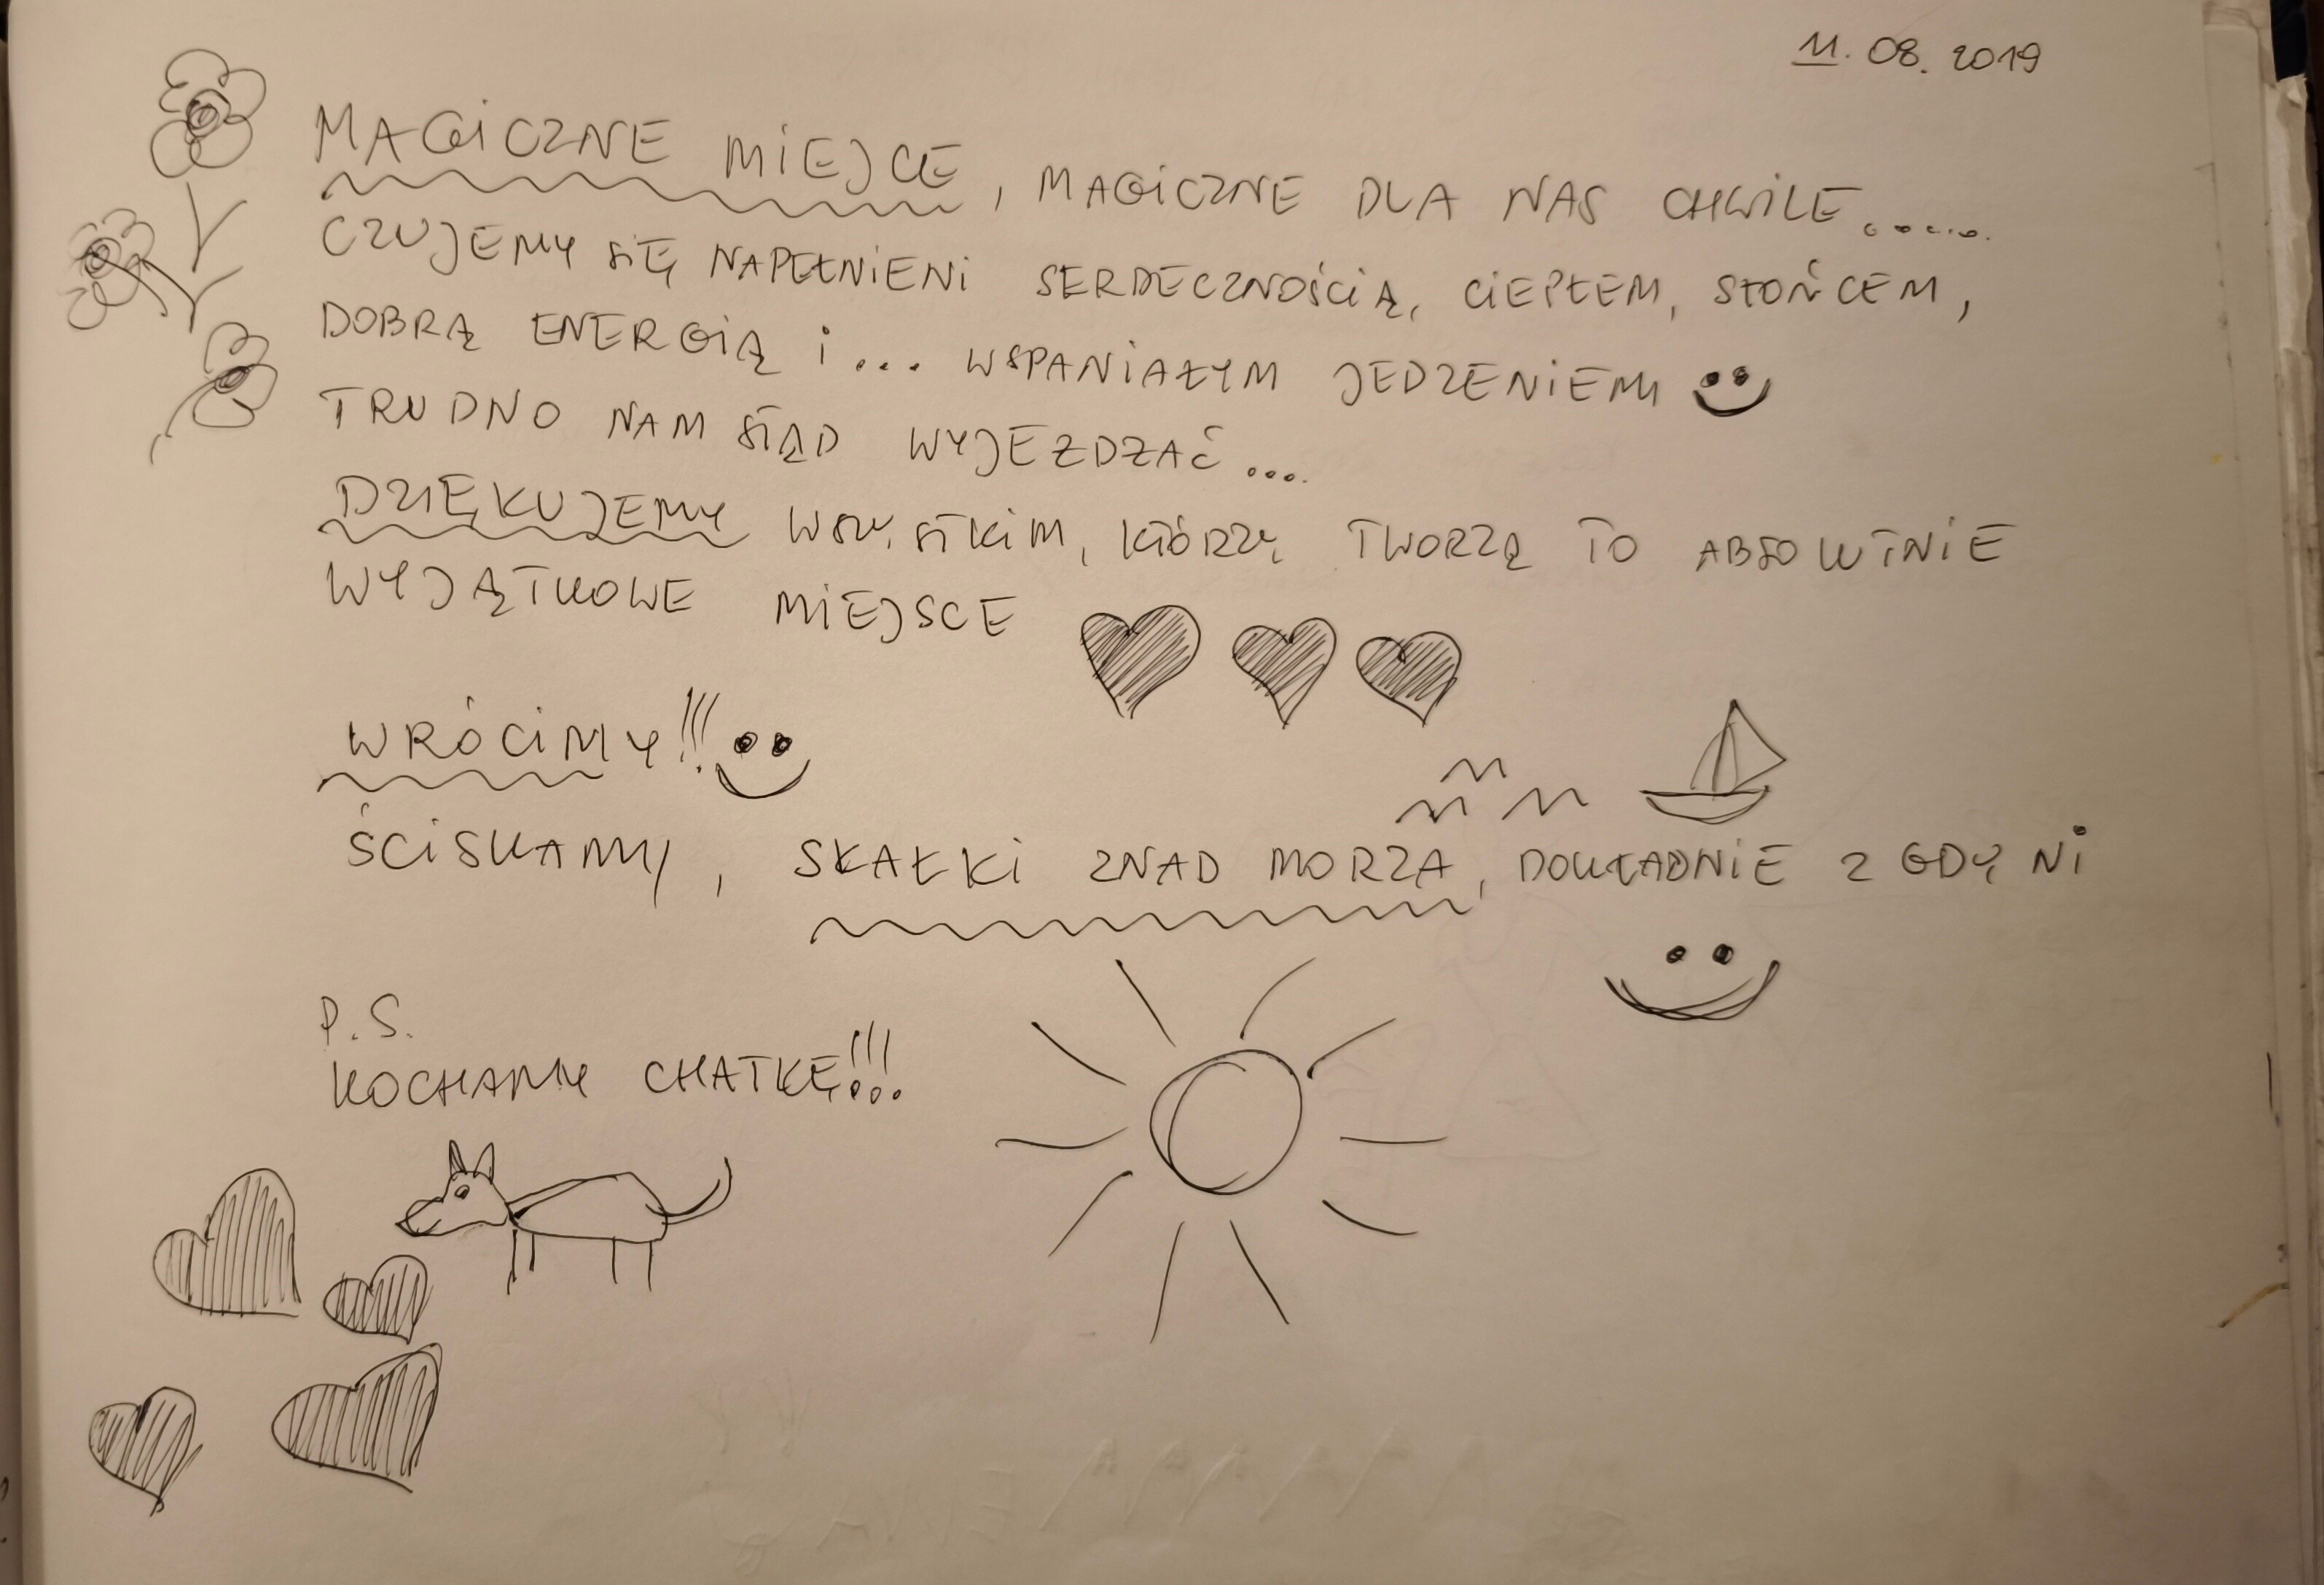 11. 08. 2019
MAGICZNE MIEJCE, MAGICZNE DLA NAS CHWILE......
CZUJEMY SIĘ NAPEŁNIENI SERDECZNOŚCIĄ, CIEPŁEM, SŁOŃCEM,
DOBRĄ ENERGIĄ i... WSPANIAŁYM JEDZENIEM
TRUDNO NAM STĄD WYJEZDZAĆ....
DZIĘKUJEMY WSZYSTKIM, KTÓRZY TWORZĄ TO ABSOLUTNIE
WYJĄTKOWE MIEJSCE
WRÓCIMY!!!
ŚCISKAMY, SKAŁKI ZNAD MORZA, DOKŁADNIE Z GDYNI
P.S.
KOCHAMY CHATKĘ!!!